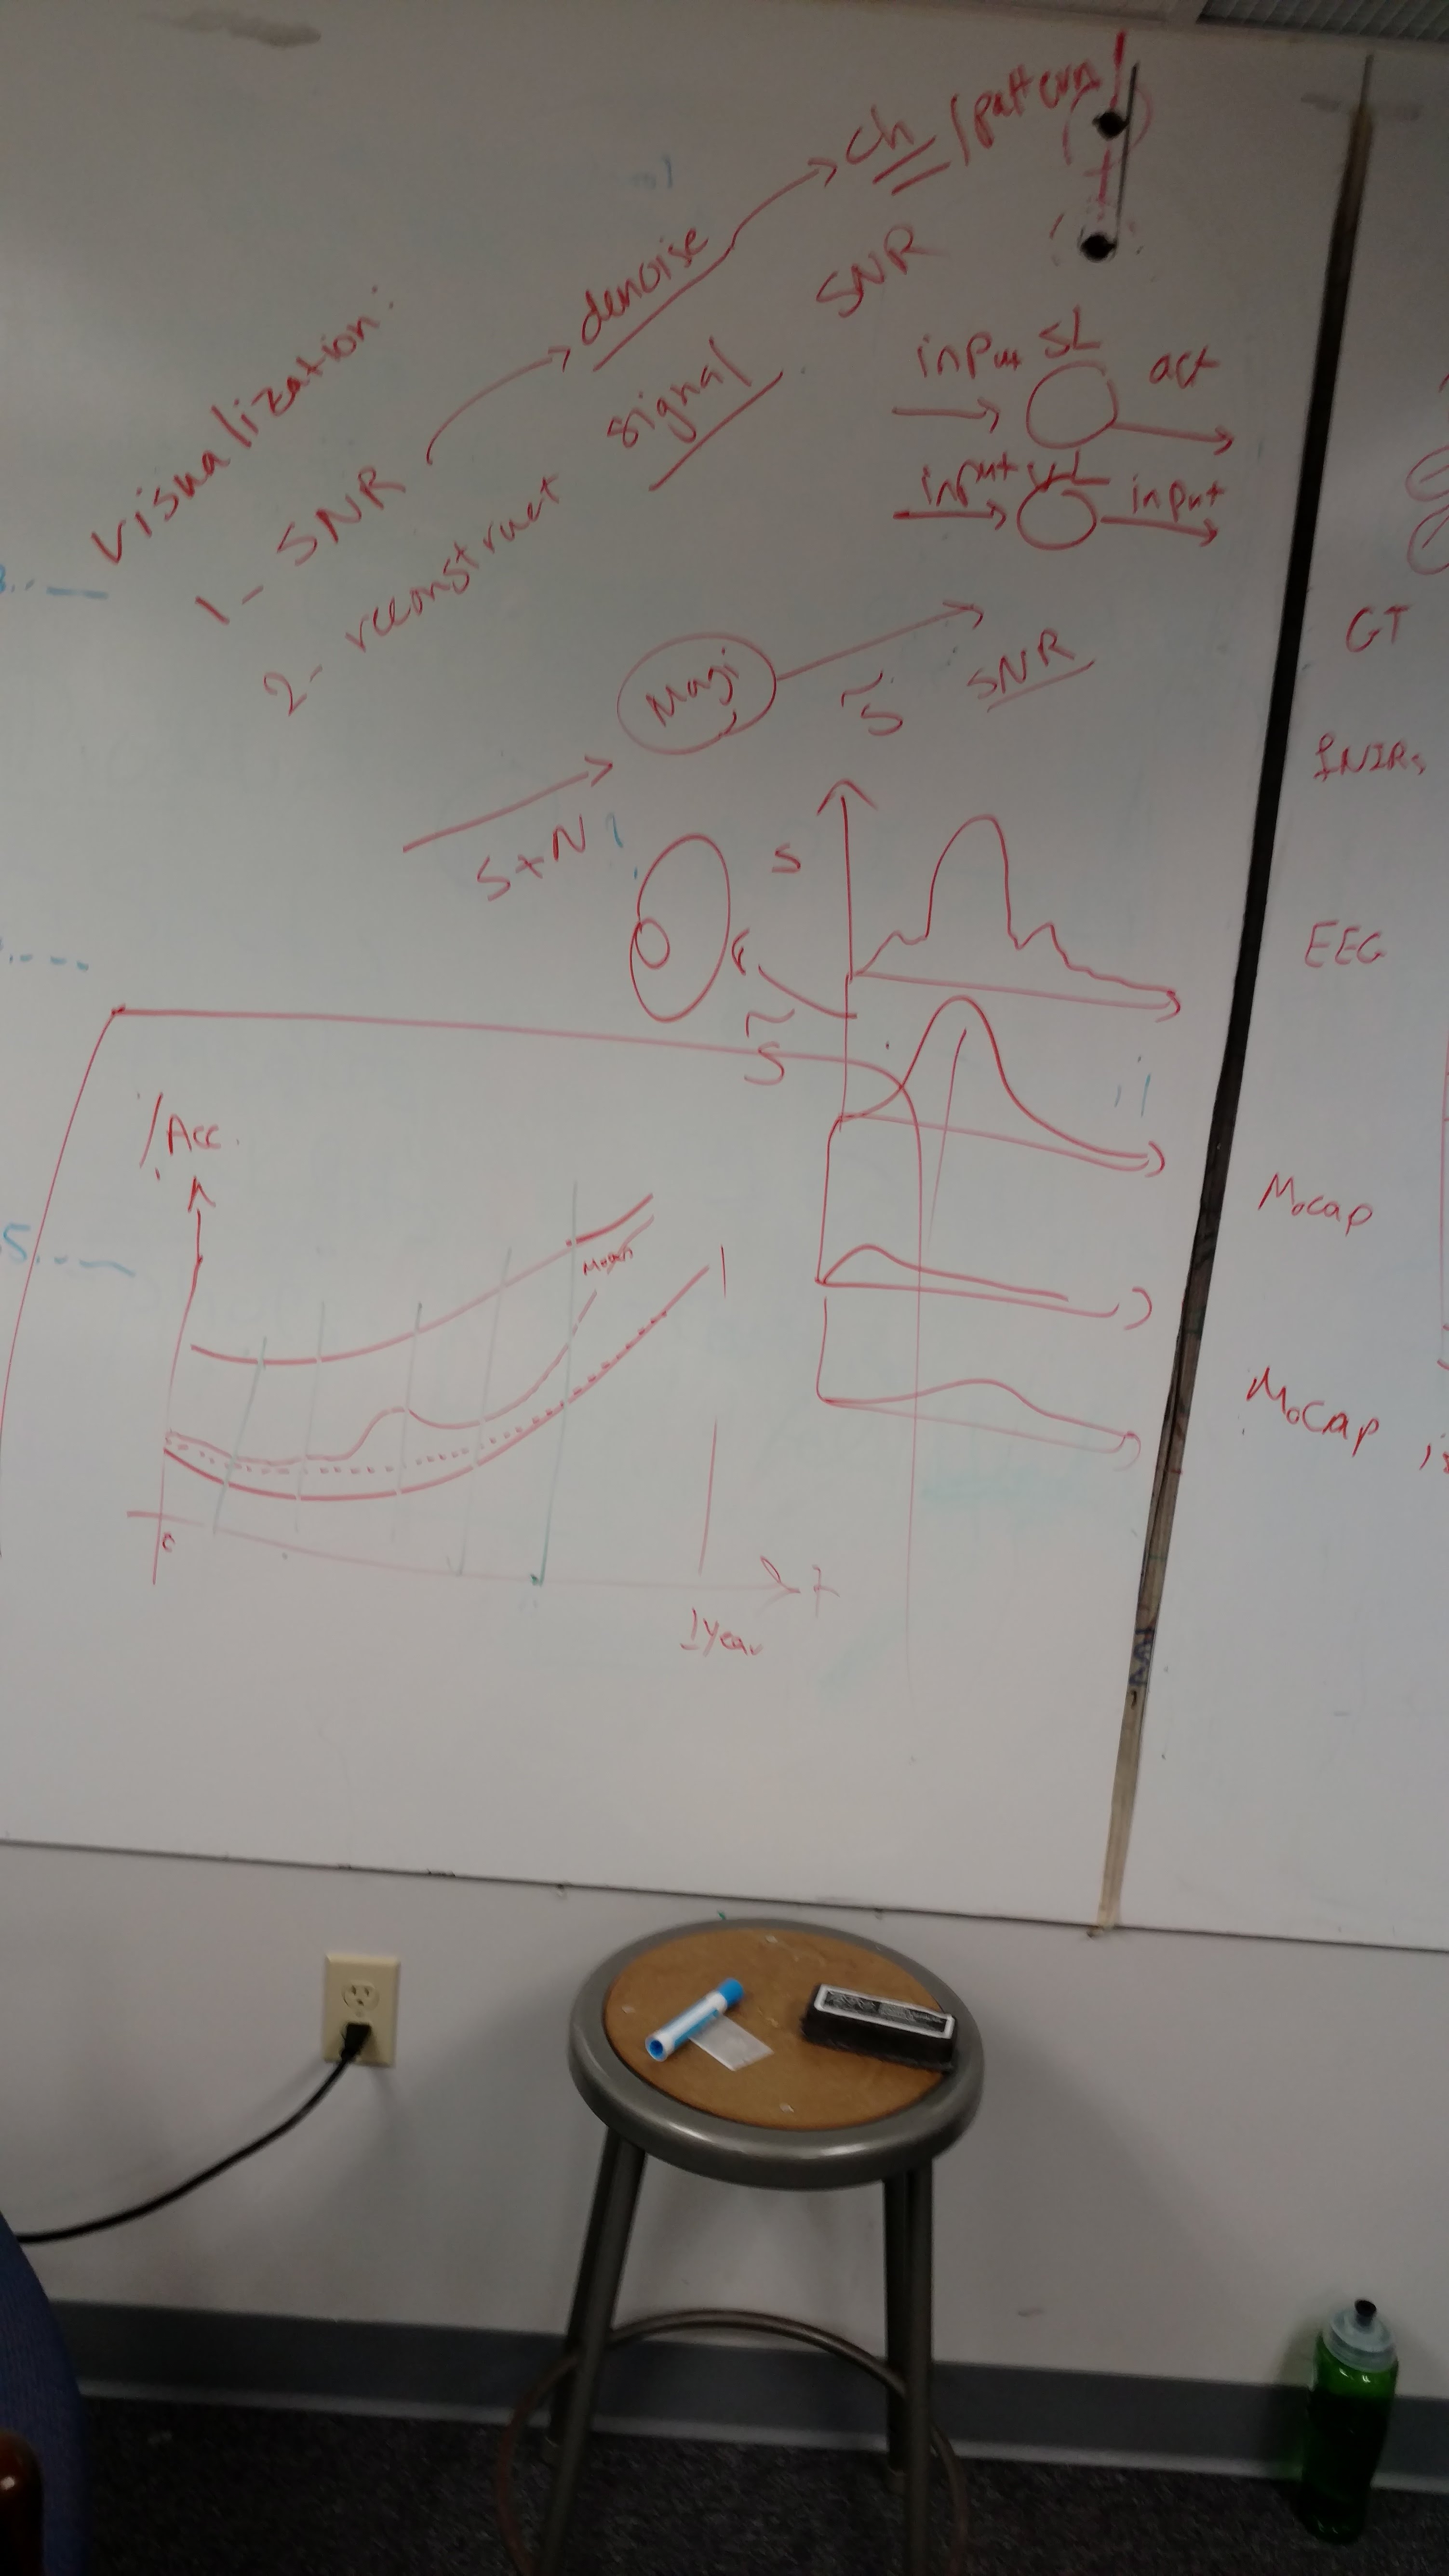 visualization:
1- SNR
denoise
ch / pattern
2- reconstruct signal
SNR
input SL act
input input
S+N
Magi
S̃ SNR
S
S̃
% Acc.
0
t
1 year
GT
fNIRs
EEG
Mocap
Mocap
5.